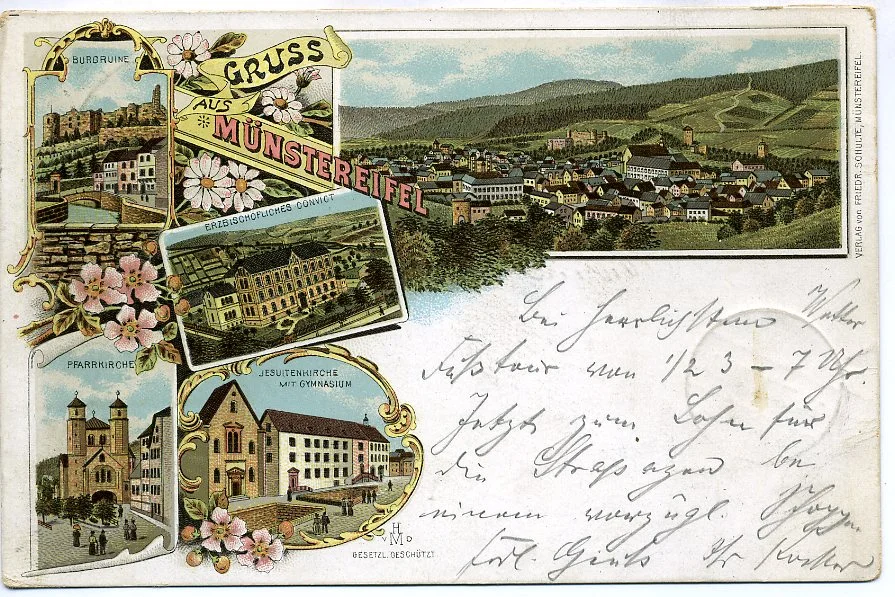 BURGRUINE
GRUSS
AUS
MÜNSTEREIFEL
ERZBISCHÖFLICHES CONVICT
PFARRKIRCHE
JESUITENKIRCHE
MIT GYMNASIUM
HMVD
GESETZL. GESCHÜTZT.
VERLAG von FRIEDR. SCHULTE, MÜNSTEREIFEL.
Bei herrlichstem Wetter
Fußtour von 1/2 3 – 7 Uhr.
Jetzt zum Lohn für
die Strapazen bei
einem vorzügl. Schoppen
Frdl. Gruß Ihr